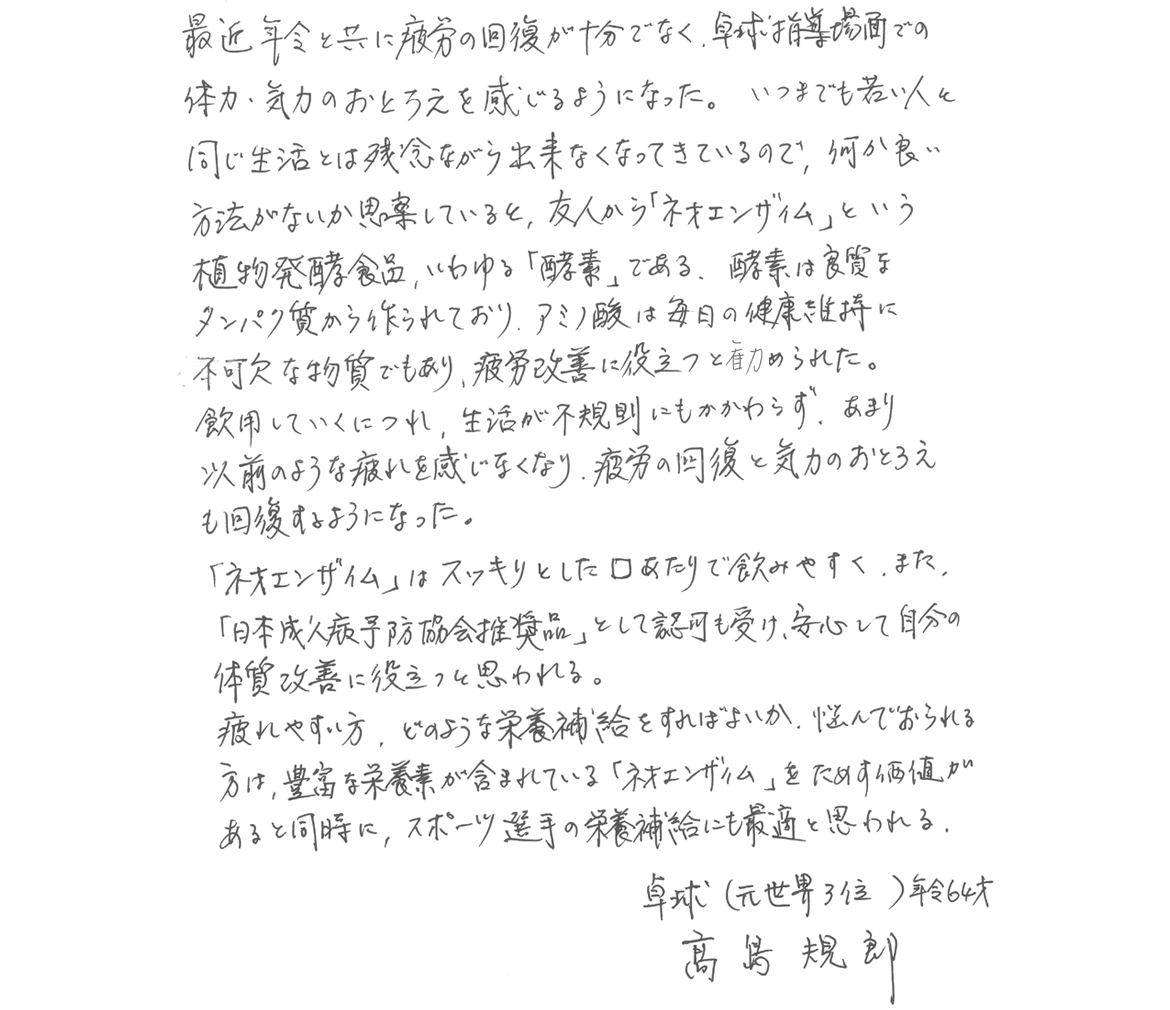 最近年令と共に疲労の回復が十分でなく、卓球指導場面での
体力・気力のおとろえを感じるようになった。 いつまでも若い人と
同じ生活とは残念ながら出来なくなってきているので、何か良い
方法がないか思案していると、友人から「ネオエンザイム」という
植物発酵食品、いわゆる「酵素」である、 酵素は良質な
タンパク質から作られており、アミノ酸は毎日の健康維持に
不可欠な物質でもあり、疲労改善に役立つと勧められた。
飲用していくにつれ、生活が不規則にもかかわらず、あまり
以前のような疲れを感じなくなり、疲労の回復と気力のおとろえ
も回復するようになった。
「ネオエンザイム」はスッキリとした口あたりで飲みやすく、また、
「日本成人病予防協会推奨品」として認可も受け、安心して自分の
体質改善に役立つと思われる。
疲れやすい方、どのような栄養補給をすればよいか、悩んでおられる
方は、豊富な栄養素が含まれている「ネオエンザイム」をためす価値が
あると同時に、スポーツ選手の栄養補給にも最適と思われる、
卓球(元世界3位 )年令64才
高島 規郎